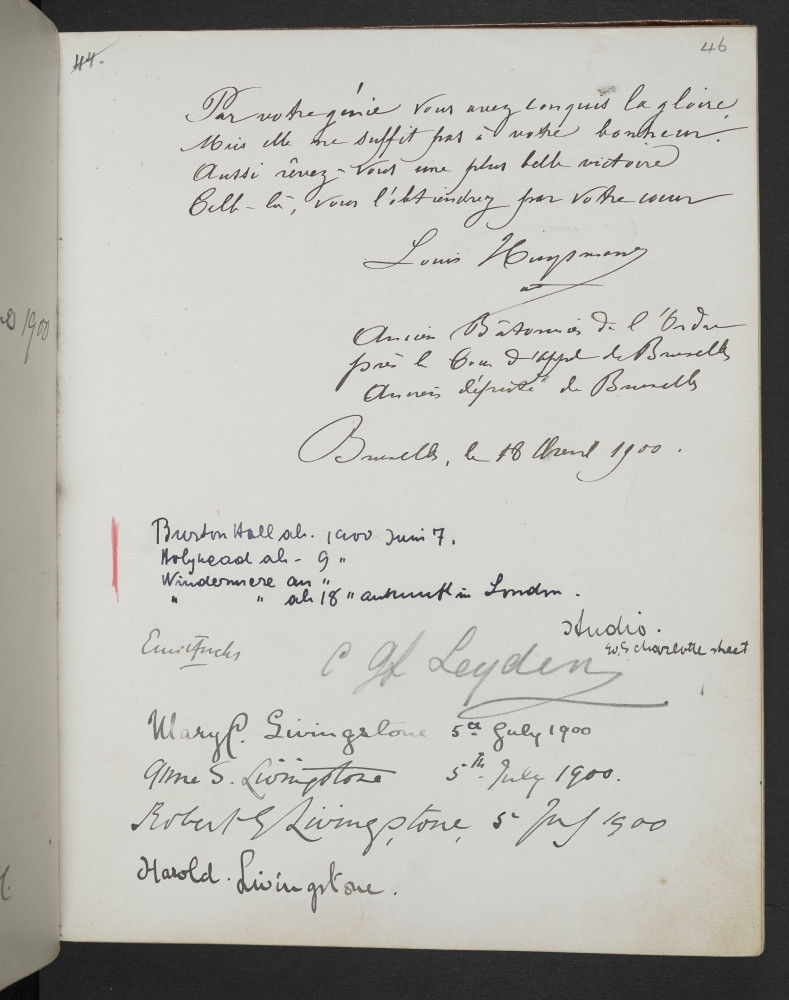 44.
46
Par votre génie vous avez conquis la gloire,
Mais elle ne suffit pas à votre bonheur.
Aussi rêvez-vous une plus belle victoire
Celle-là, vous l'obtiendrez par votre cœur
Louis Huysmans
Ancien Bâtonnier de l'Ordre
près la Cour d'Appel de Bruxelles
Ancien député de Bruxelles
Bruxelles, le 18 Avril 1900.
1900
Burton Hall ab. 1900 Juni 7.
Holyhead ab - 9 "
Windermere an "
" " ab 18 " ankunft in London.
Studio.
charlotte street
Emil Fuchs
C Gf Leyden
Mary P. Livingstone 5th July 1900
Anne S. Livingstone 5th July 1900.
Robert G Livingstone, 5 July 1900
Harold. Livingstone.